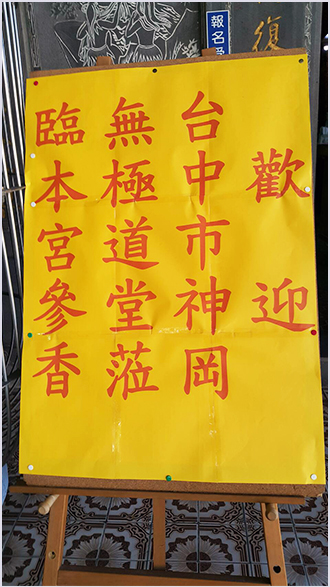 歡迎
台中市神岡
無極道堂蒞
臨本宮參香
報名
復